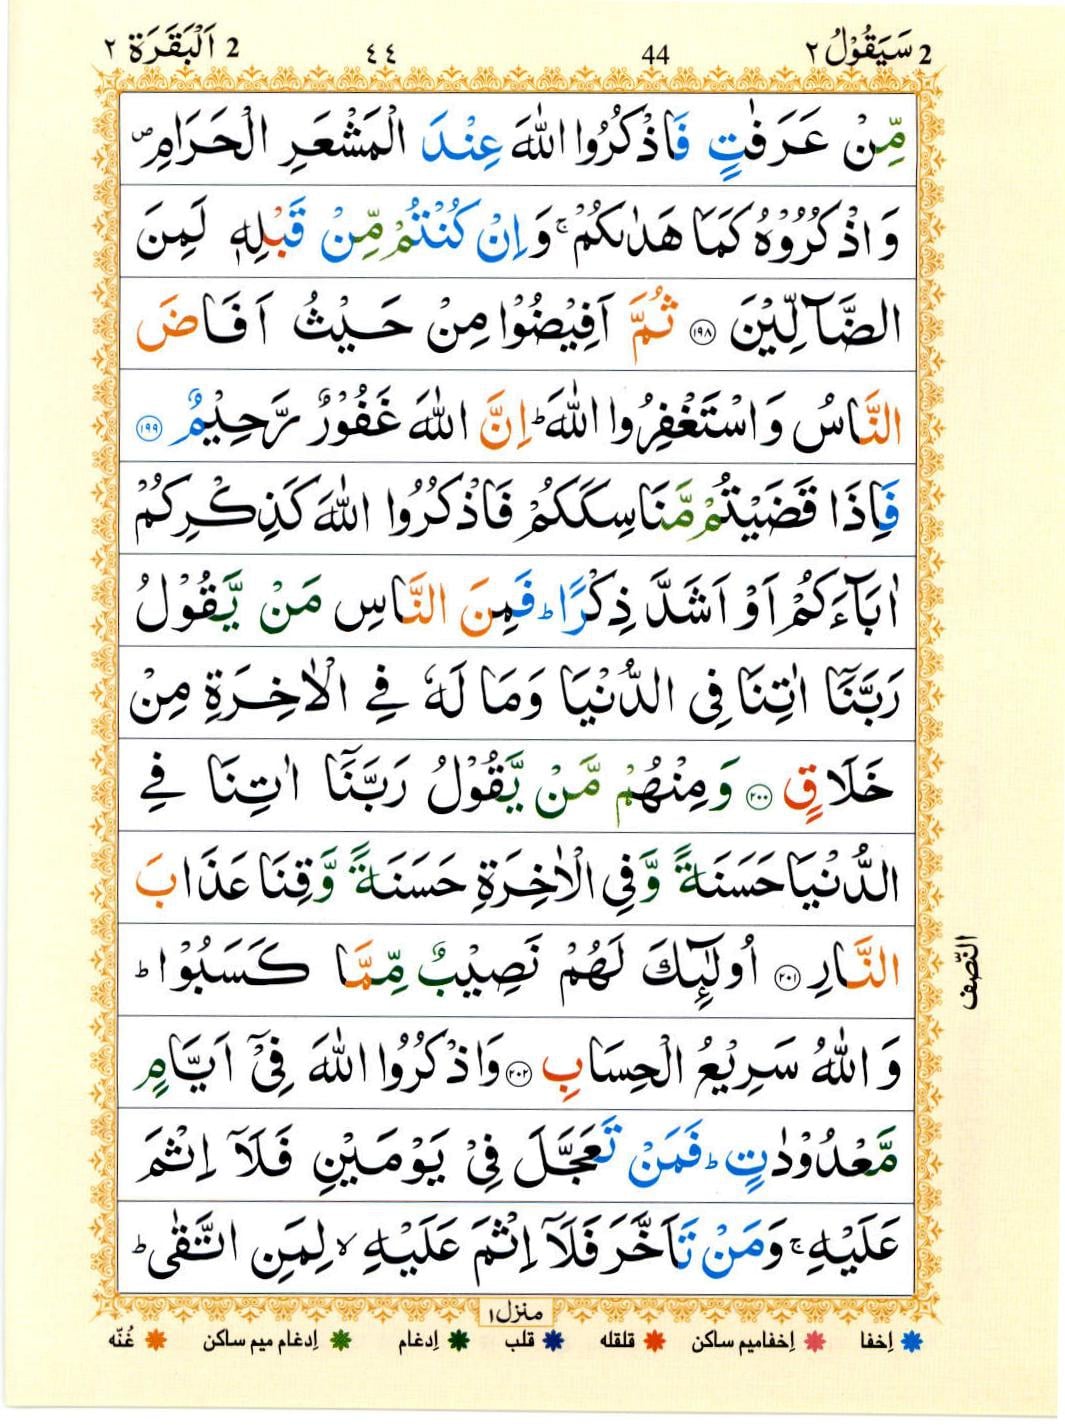 2 سَيَقُوْلُ ٢ 44 ٤٤ 2 اَلْبَقَرَة ٢
مِّنْ عَرَفٰتٍ فَاذْكُرُوا اللّٰهَ عِنْدَ الْمَشْعَرِ الْحَرَامِ ۪
وَاذْكُرُوْهُ كَمَا هَدٰىكُمْ ۚ وَاِنْ كُنْتُمْ مِّنْ قَبْلِهٖ لَمِنَ
الضَّآلِّيْنَ ﴿١٩٨﴾ ثُمَّ اَفِيْضُوْا مِنْ حَيْثُ اَفَاضَ
النَّاسُ وَاسْتَغْفِرُوا اللّٰهَ ؕ اِنَّ اللّٰهَ غَفُوْرٌ رَّحِيْمٌ ﴿١٩٩﴾
فَاِذَا قَضَيْتُمْ مَّنَاسِكَكُمْ فَاذْكُرُوا اللّٰهَ كَذِكْرِكُمْ
اٰبَآءَكُمْ اَوْ اَشَدَّ ذِكْرًا ؕ فَمِنَ النَّاسِ مَنْ يَّقُوْلُ
رَبَّنَآ اٰتِنَا فِى الدُّنْيَا وَمَا لَهٗ فِى الْاٰخِرَةِ مِنْ
خَلَاقٍ ﴿٢٠٠﴾ وَمِنْهُمْ مَّنْ يَّقُوْلُ رَبَّنَآ اٰتِنَا فِى
الدُّنْيَا حَسَنَةً وَّفِى الْاٰخِرَةِ حَسَنَةً وَّقِنَا عَذَابَ
النَّارِ ﴿٢٠١﴾ اُولٰٓئِكَ لَهُمْ نَصِيْبٌ مِّمَّا كَسَبُوْا ؕ
وَاللّٰهُ سَرِيْعُ الْحِسَابِ ﴿٢٠٢﴾ وَاذْكُرُوا اللّٰهَ فِىْٓ اَيَّامٍ
مَّعْدُوْدٰتٍ ؕ فَمَنْ تَعَجَّلَ فِىْ يَوْمَيْنِ فَلَآ اِثْمَ
عَلَيْهِ ۚ وَمَنْ تَاَخَّرَ فَلَآ اِثْمَ عَلَيْهِ ۙ لِمَنِ اتَّقٰى ؕ
النّصف
منزل ١
اِخفا اِخفامیم ساکن قلقله قلب اِدغام اِدغام میم ساکن غُنّه